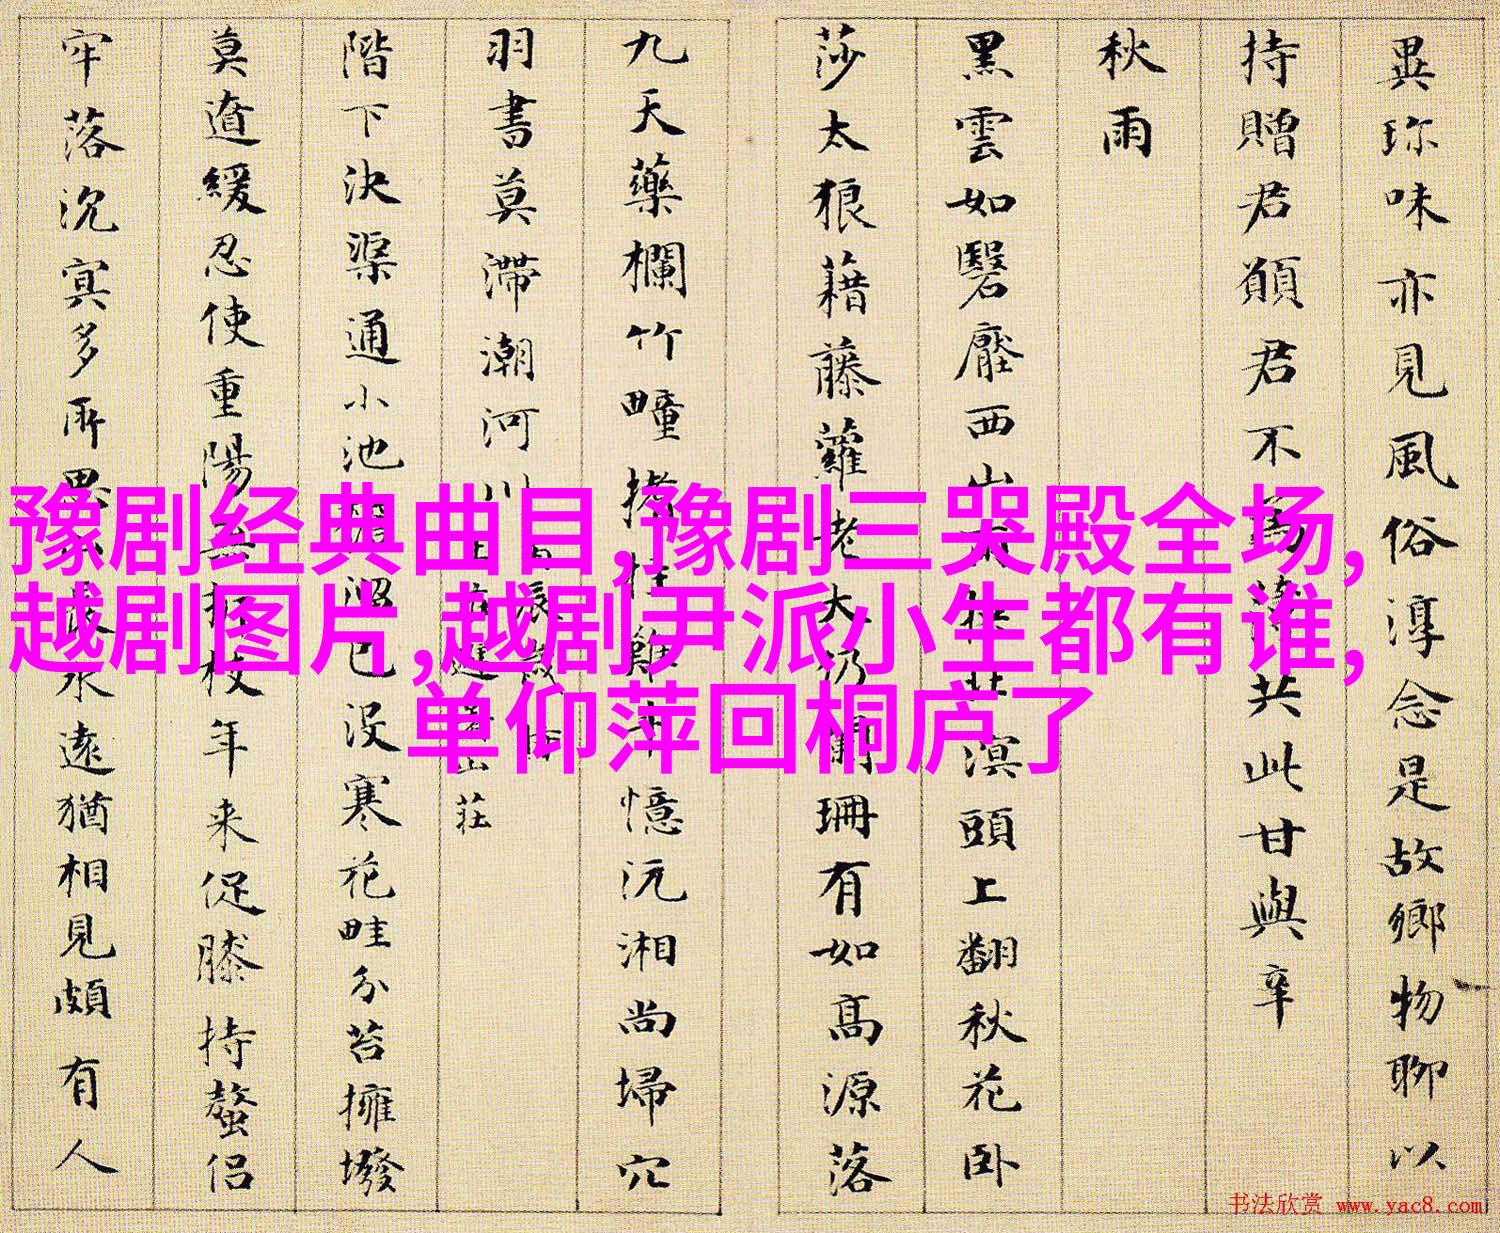 異珎味亦見風俗淳念是故鄉物聊以
持贈君願君不落共此甘與辛
秋雨
黑雲如翳壓西山溟頭上翻秋花卧
莎太狼藉藤蘿老大仍闌珊有如高源落
九天藥欄竹疃柱難憶沅湘尚埽穴
羽書莫滯潮河川
山莊
階下決渠通小池照已没寒花畦分苔擁墢
莫緩忍使重陽杖年来促膝持螯侣
牢落沉冥多所思永遠猶相見頗有人
豫剧经典曲目,豫剧三哭殿全场,
越剧图片,越剧尹派小生都有谁,
单仰萍回桐庐了
书法欣赏 www.yac8.com